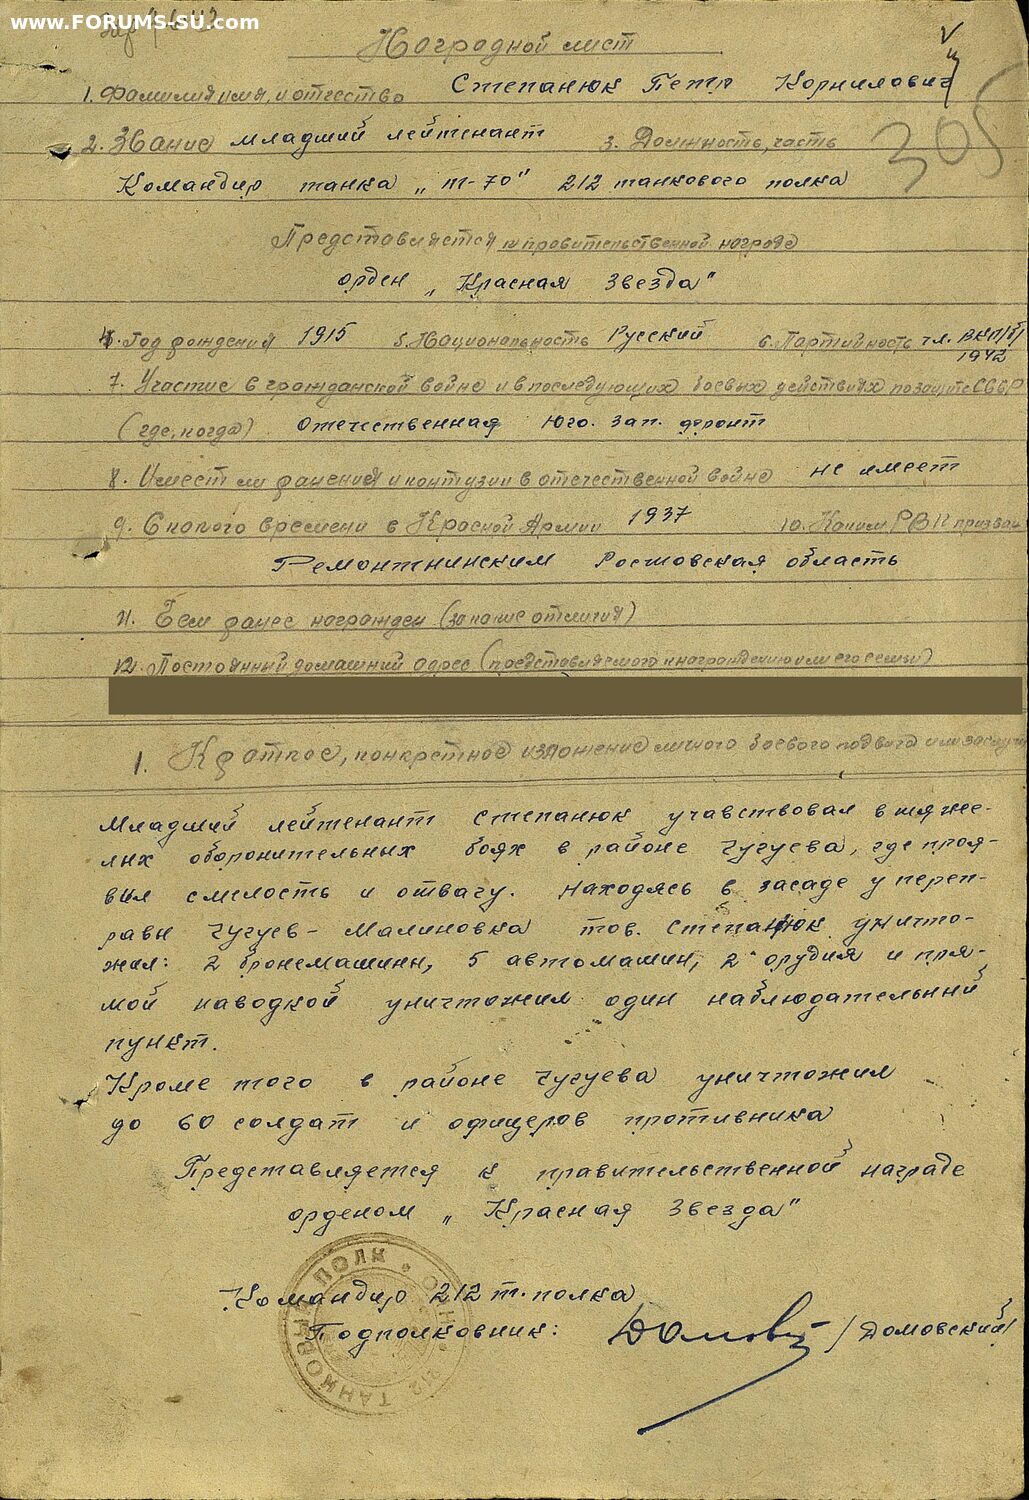 www.FORUMS-SU.com
Наградной лист
1. Фамилия имя, и отчество Степанюк Петр Корнилович
305
2. Звание младший лейтенант 3. Должность, часть
Командир танка „т-70" 212 танкового полка
Представляется к правительственной награде
орден „Красная Звезда"
4. Год рождения 1915 5. Национальность Русский 6. Партийность чл. ВКП/б/
1942
7. Участие в гражданской войне и в последующих боевых действиях по защите СССР
(где, когда) Отечественная Юго. зап. фронт
8. Имеет ли ранения и контузии в отечественной войне не имеет
9. С какого времени в Красной Армии 1937 10. Каким РВК призван
Ремонтнинским Ростовская область
11. Чем ранее награжден (за какие отличия)
12. Постоянный домашний адрес (представляемого к награждению или его семьи)
1. Краткое, конкретное изложение личного боевого подвига или заслуги
Младший лейтенант Степанюк учавствовал в тяже-
лых оборонительных боях в районе Чугуева, где проя-
вил смелость и отвагу. Находясь в засаде у переп-
равы Чугуев - Малиновка тов. Степанюк уничто-
жил: 2 бронемашины, 5 автомашин, 2 орудия и пря-
мой наводкой уничтожил один наблюдательный
пункт.
Кроме того в районе Чугуева уничтожил
до 60 солдат и офицеров противника
Представляется к правительственной награде
орденом „Красная Звезда"
Командир 212 т. полка
Подполковник: /Домовский/
212 ТАНКОВЫЙ ПОЛК